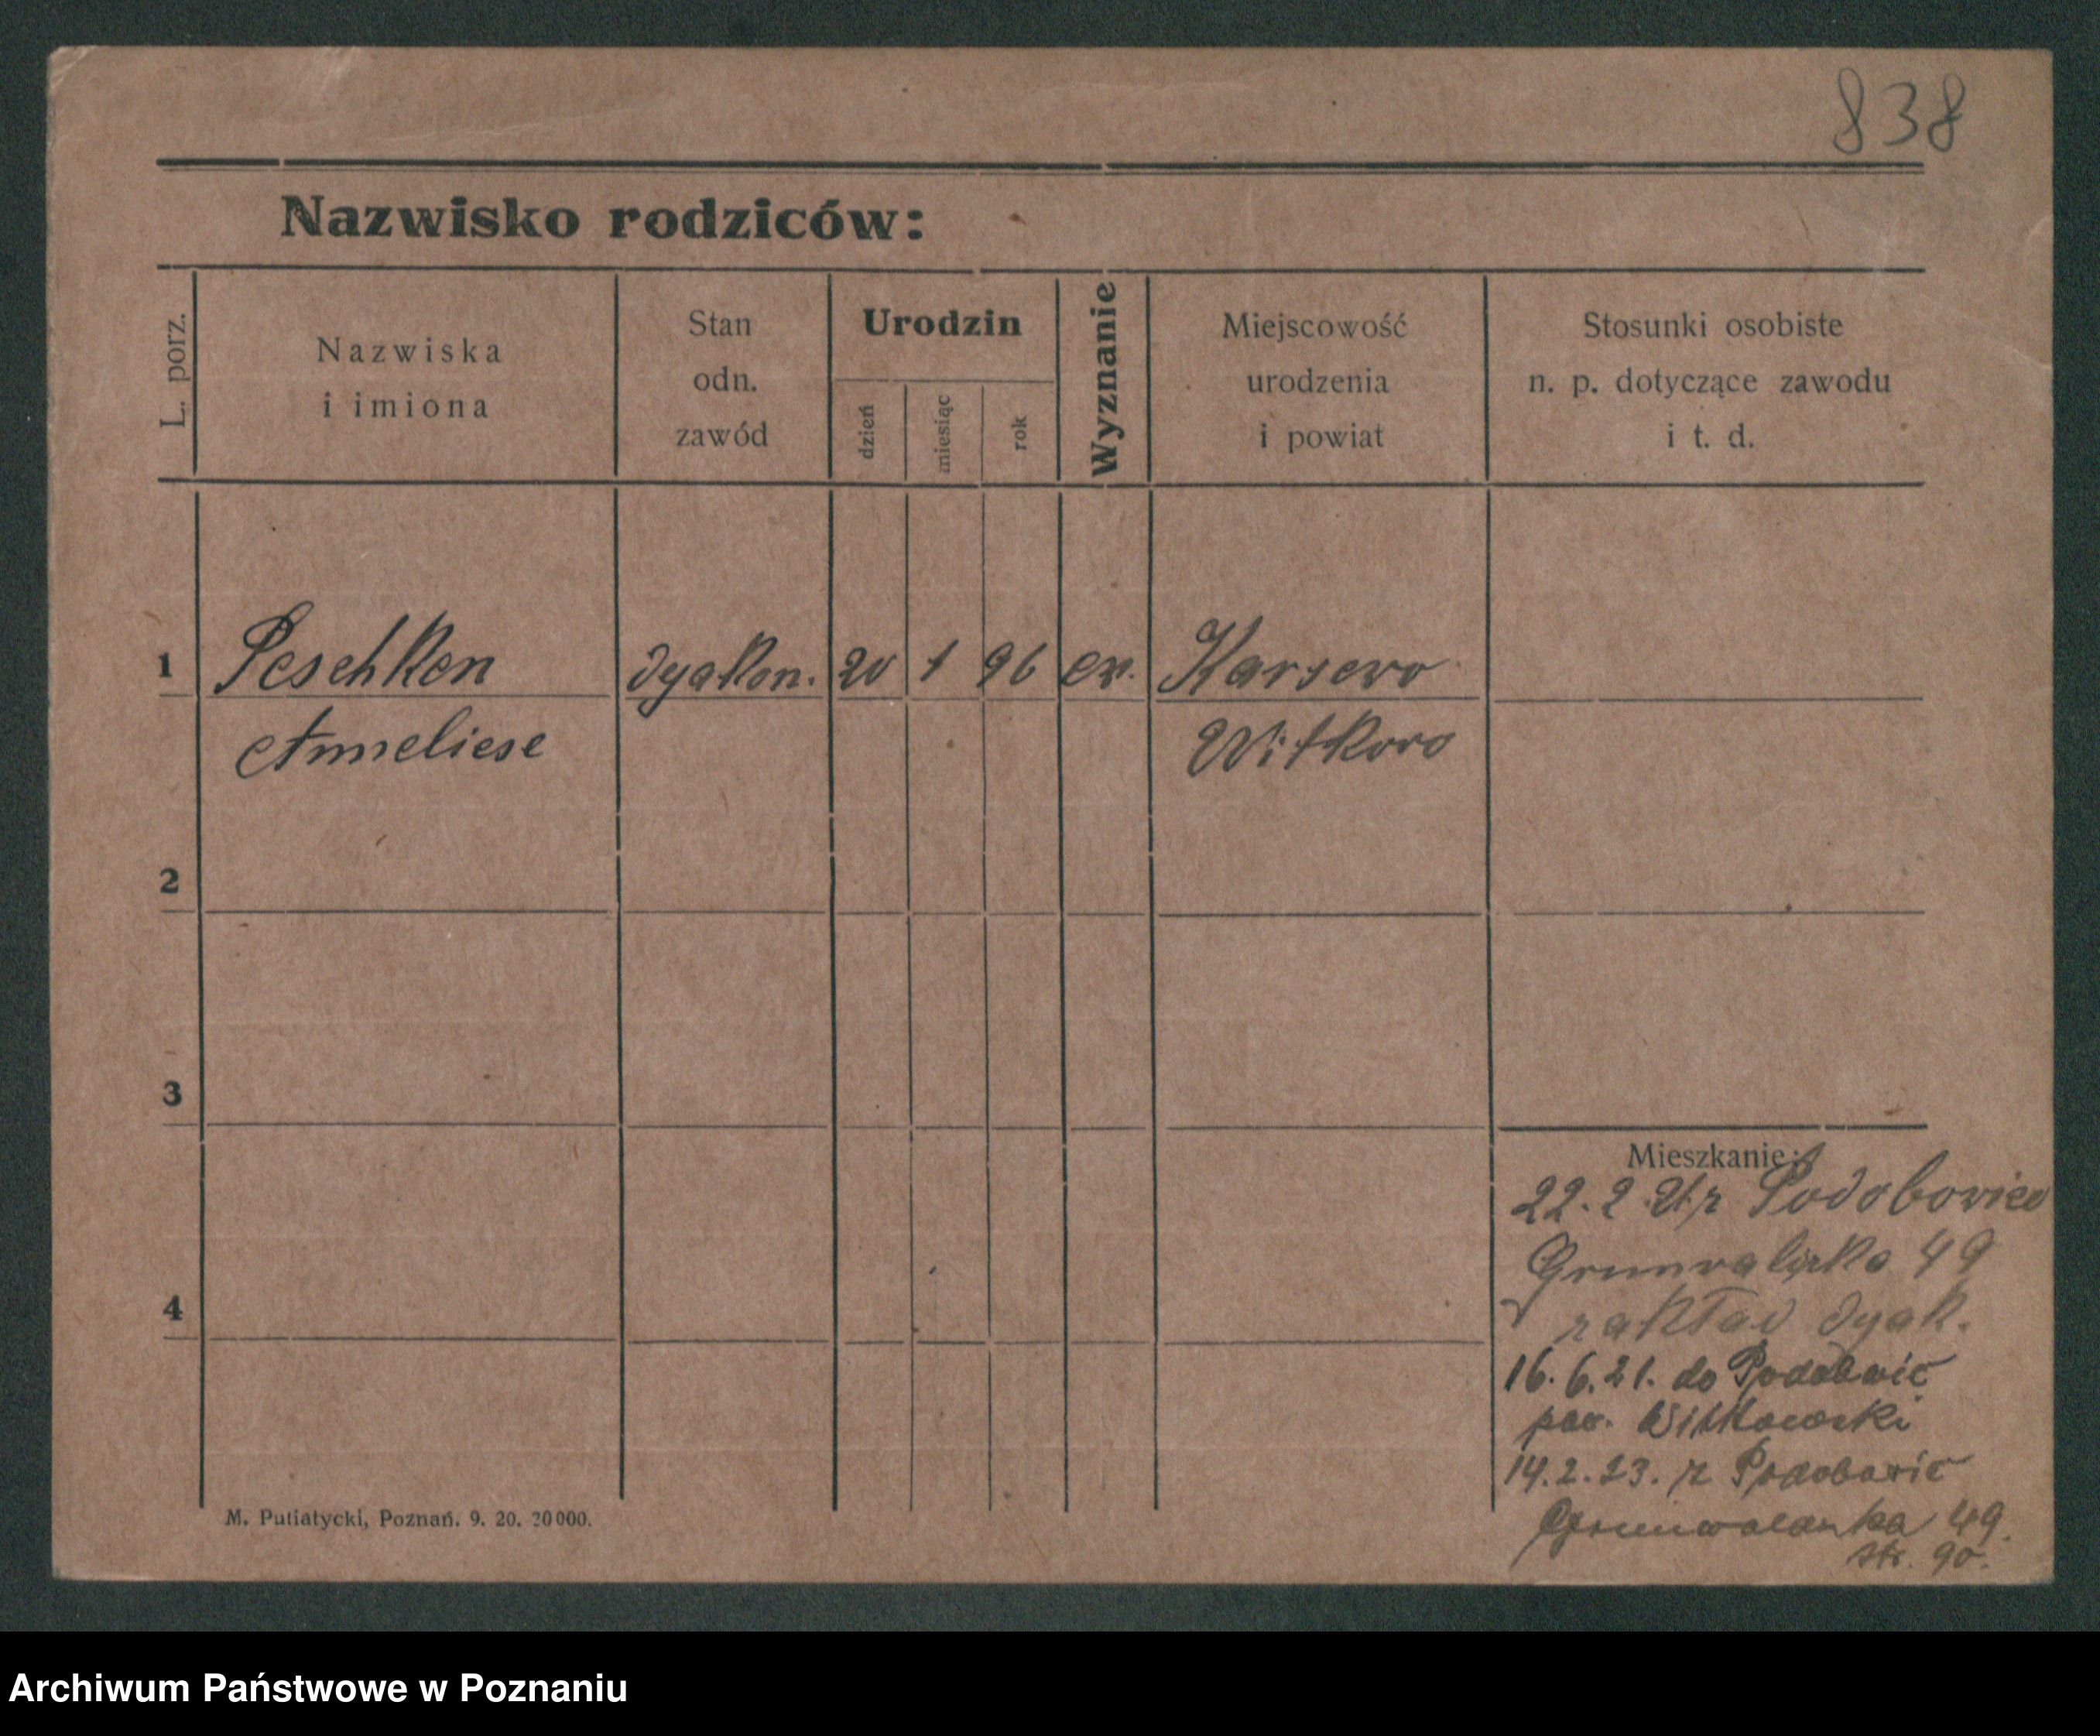 838
Nazwisko rodziców:
L. porz.
Nazwiska
i imiona
Stan
odn.
zawód
Urodzin
dzień
miesiąc
rok
Wyznanie
Miejscowość
urodzenia
i powiat
Stosunki osobiste
n. p. dotyczące zawodu
i t. d.
1 Peschken dyakon. 20 1 96 ew. Karsewo
Anneliese Witkowo
2
3
4
Mieszkanie:
22. 2. 21 z Podobowice
Grunwalzka 49
zakład dyak.
16. 6. 21. do Podobowic
pow. Witkowski
14. 2. 23. z Podobowic
Grunwaldzka 49.
str. 90.
M. Putiatycki, Poznań. 9. 20. 20000.
Archiwum Państwowe w Poznaniu